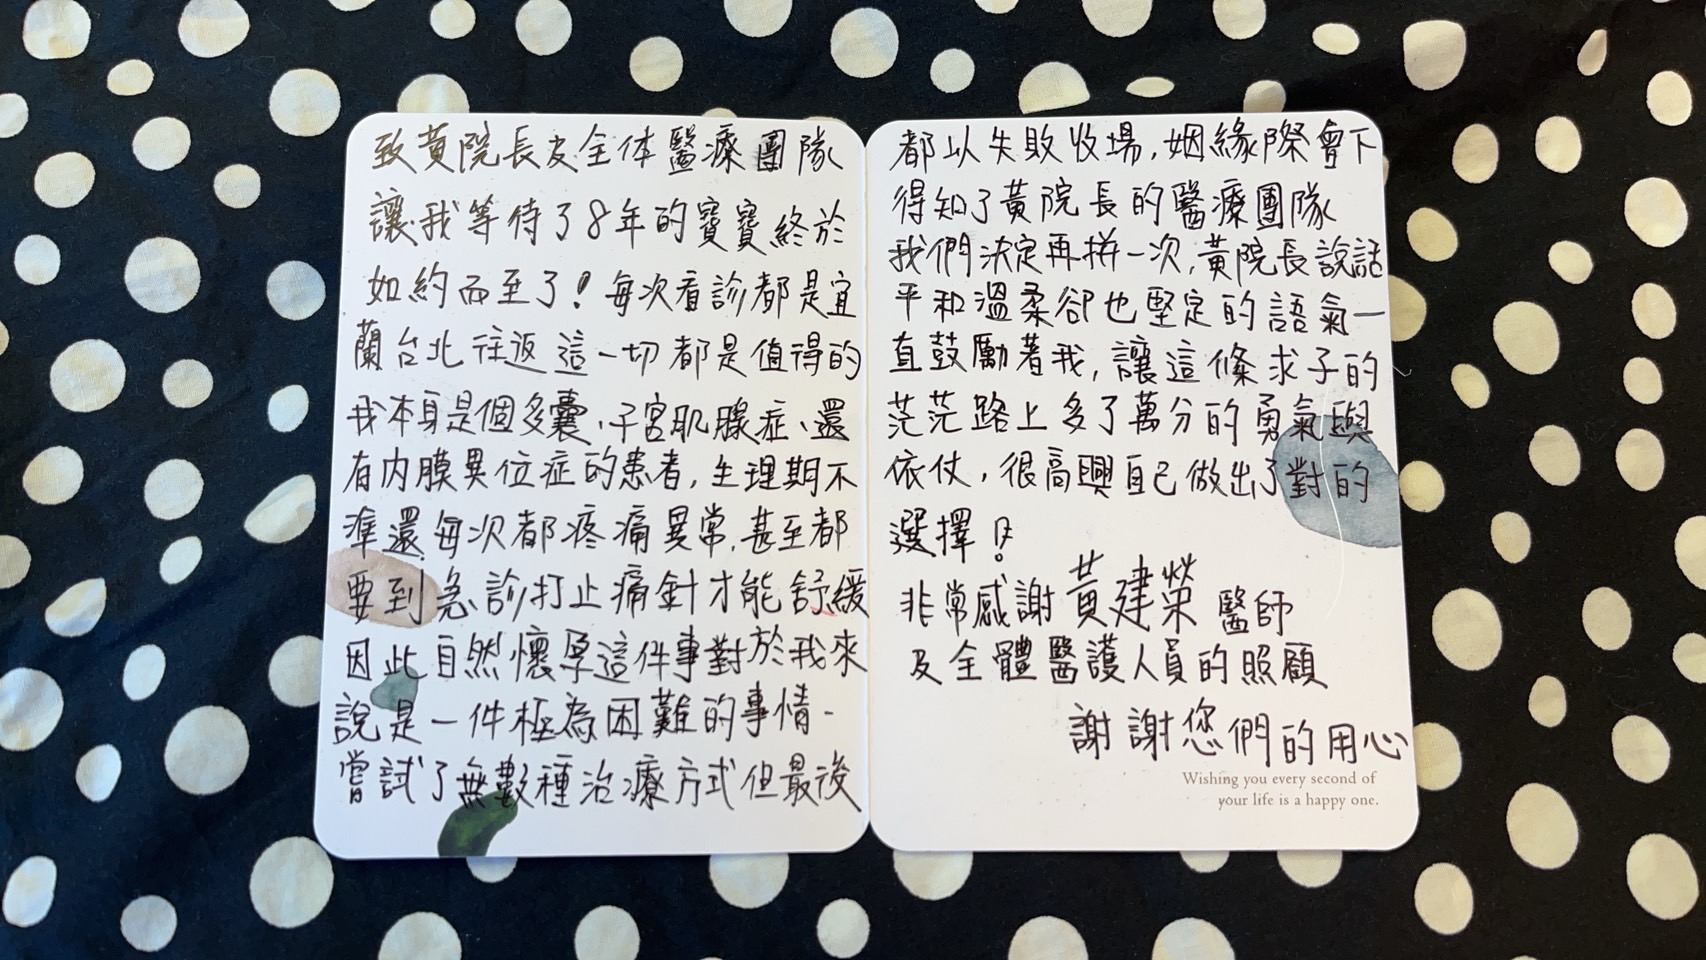 致黃院長及全体醫療團隊
讓我等待了8年的寶寶終於
如約而至了!每次看診都是宜
蘭台北往返這一切都是值得的
我本身是個多囊、子宮肌腺症、還
有內膜異位症的患者,生理期不
準還每次都疼痛異常,甚至都
要到急診打止痛針才能舒緩
因此自然懷孕這件事對於我來
說是一件極為困難的事情-
嘗試了無數種治療方式但最後
都以失敗收場,姻緣際會下
得知了黃院長的醫療團隊
我們決定再拼一次,黃院長說話
平和溫柔卻也堅定的語氣一
直鼓勵著我,讓這條求子的
茫茫路上多了萬分的勇氣與
依仗,很高興自己做出了對的
選擇!
非常感謝黃建榮醫師
及全體醫護人員的照顧
謝謝您們的用心
Wishing you every second of
your life is a happy one.